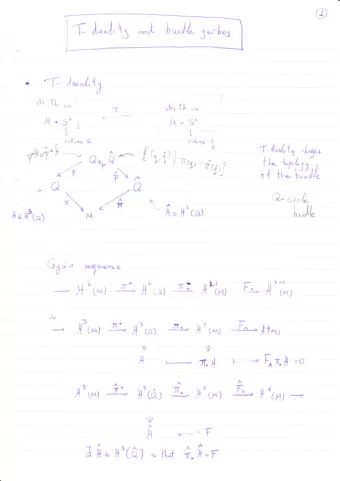 T-duality and bundle gerbes
• T-duality
sth th on
M × S¹
T
sth th on
M × S¹
radius R
radius 1/R
p*H = p̂*Ĥ
Q ×_M Q̂
{(q, q̂) | π(q) = π̂(q̂)}
T-duality changes
the topology
of the bundle
p
p̂
Q
Q̂
Q - circle
bundle
π
π̂
H ∈ H³(Q)
M
Ĥ ∈ H³(Q̂)
Gysin sequence
→ Hᵏ(M) π*→ Hᵏ(Q) π_*→ Hᵏ⁻¹(M) F∧→ Hᵏ⁺¹(M)
→ H³(M) π*→ H³(Q) π_*→ H²(M) F∧→ H⁴(M)
H ⟼ π_*H ⟼ F∧π_*H = 0
H³(M) π̂*→ H³(Q̂) π̂_*→ H²(M) F̂∧→ H⁴(M) →
Ĥ ⟼ F
∃ Ĥ ∈ H³(Q̂) so that π̂_*Ĥ = F